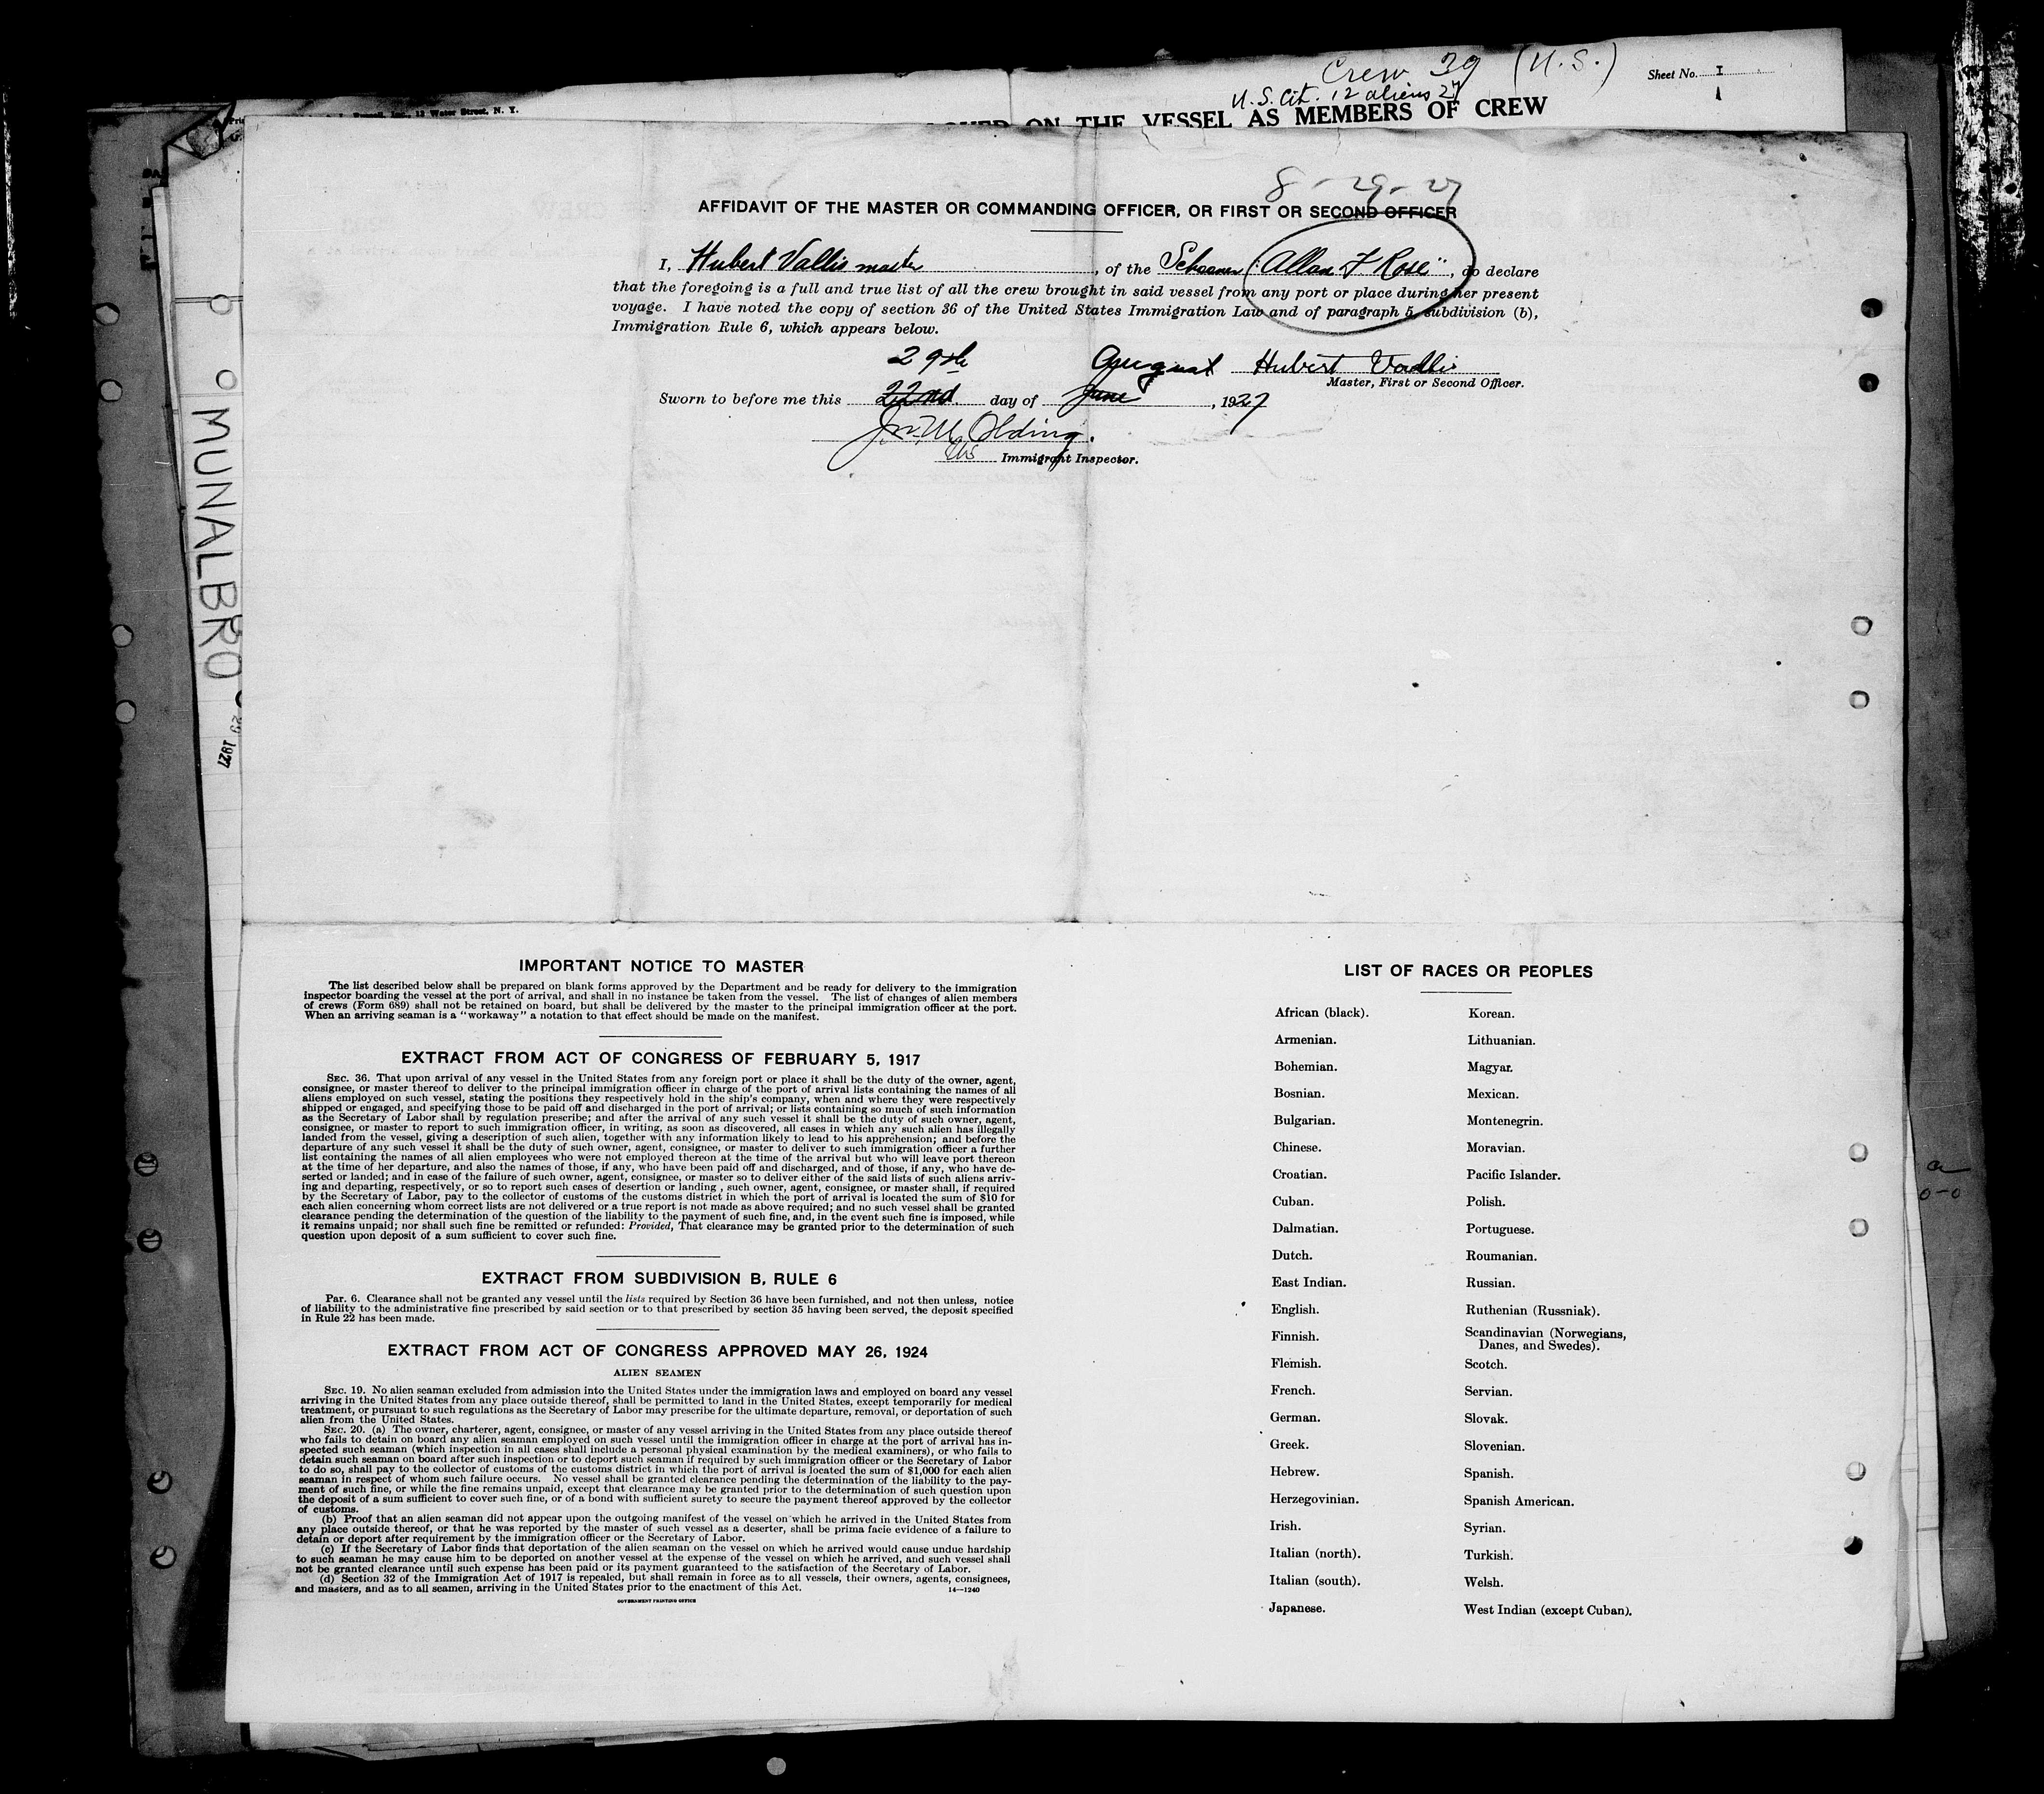 Crew 39 (U.S.)
Sheet No. I
U.S. Cit. 12 aliens 27
1
15 Water Street, N. Y.
ON THE VESSEL AS MEMBERS OF CREW
8-29-27
AFFIDAVIT OF THE MASTER OR COMMANDING OFFICER, OR FIRST OR SECOND OFFICER
I, Hubert Vallis master, of the Schooner "Allan F Rose", do declare
that the foregoing is a full and true list of all the crew brought in said vessel from any port or place during her present
voyage. I have noted the copy of section 36 of the United States Immigration Law and of paragraph 5, subdivision (b),
Immigration Rule 6, which appears below.
29th August Hubert Vallis
Master, First or Second Officer.
Sworn to before me this 22nd day of June, 1927
Olding.
US Immigrant Inspector.
MUNALBRO
29 1927
IMPORTANT NOTICE TO MASTER
The list described below shall be prepared on blank forms approved by the Department and be ready for delivery to the immigration
inspector boarding the vessel at the port of arrival, and shall in no instance be taken from the vessel. The list of changes of alien members
of crews (Form 689) shall not be retained on board, but shall be delivered by the master to the principal immigration officer at the port.
When an arriving seaman is a "workaway" a notation to that effect should be made on the manifest.
EXTRACT FROM ACT OF CONGRESS OF FEBRUARY 5, 1917
SEC. 36. That upon arrival of any vessel in the United States from any foreign port or place it shall be the duty of the owner, agent,
consignee, or master thereof to deliver to the principal immigration officer in charge of the port of arrival lists containing the names of all
aliens employed on such vessel, stating the positions they respectively hold in the ship's company, when and where they were respectively
shipped or engaged, and specifying those to be paid off and discharged in the port of arrival; or lists containing so much of such information
as the Secretary of Labor shall by regulation prescribe; and after the arrival of any such vessel it shall be the duty of such owner, agent,
consignee, or master to report to such immigration officer, in writing, as soon as discovered, all cases in which any such alien has illegally
landed from the vessel, giving a description of such alien, together with any information likely to lead to his apprehension; and before the
departure of any such vessel it shall be the duty of such owner, agent, consignee, or master to deliver to such immigration officer a further
list containing the names of all alien employees who were not employed thereon at the time of the arrival but who will leave port thereon
at the time of her departure, and also the names of those, if any, who have been paid off and discharged, and of those, if any, who have de-
serted or landed; and in case of the failure of such owner, agent, consignee, or master so to deliver either of the said lists of such aliens arriv-
ing and departing, respectively, or so to report such cases of desertion or landing , such owner, agent, consignee, or master shall, if required
by the Secretary of Labor, pay to the collector of customs of the customs district in which the port of arrival is located the sum of $10 for
each alien concerning whom correct lists are not delivered or a true report is not made as above required; and no such vessel shall be granted
clearance pending the determination of the question of the liability to the payment of such fine, and, in the event such fine is imposed, while
it remains unpaid; nor shall such fine be remitted or refunded: Provided, That clearance may be granted prior to the determination of such
question upon deposit of a sum sufficient to cover such fine.
EXTRACT FROM SUBDIVISION B, RULE 6
PAR. 6. Clearance shall not be granted any vessel until the lists required by Section 36 have been furnished, and not then unless, notice
of liability to the administrative fine prescribed by said section or to that prescribed by section 35 having been served, the deposit specified
in Rule 22 has been made.
EXTRACT FROM ACT OF CONGRESS APPROVED MAY 26, 1924
ALIEN SEAMEN
SEC. 19. No alien seaman excluded from admission into the United States under the immigration laws and employed on board any vessel
arriving in the United States from any place outside thereof, shall be permitted to land in the United States, except temporarily for medical
treatment, or pursuant to such regulations as the Secretary of Labor may prescribe for the ultimate departure, removal, or deportation of such
alien from the United States.
SEC. 20. (a) The owner, charterer, agent, consignee, or master of any vessel arriving in the United States from any place outside thereof
who fails to detain on board any alien seaman employed on such vessel until the immigration officer in charge at the port of arrival has in-
spected such seaman (which inspection in all cases shall include a personal physical examination by the medical examiners), or who fails to
detain such seaman on board after such inspection or to deport such seaman if required by such immigration officer or the Secretary of Labor
to do so, shall pay to the collector of customs of the customs district in which the port of arrival is located the sum of $1,000 for each alien
seaman in respect of whom such failure occurs. No vessel shall be granted clearance pending the determination of the liability to the pay-
ment of such fine, or while the fine remains unpaid, except that clearance may be granted prior to the determination of such question upon
the deposit of a sum sufficient to cover such fine, or of a bond with sufficient surety to secure the payment thereof approved by the collector
of customs.
(b) Proof that an alien seaman did not appear upon the outgoing manifest of the vessel on which he arrived in the United States from
any place outside thereof, or that he was reported by the master of such vessel as a deserter, shall be prima facie evidence of a failure to
detain or deport after requirement by the immigration officer or the Secretary of Labor.
(c) If the Secretary of Labor finds that deportation of the alien seaman on the vessel on which he arrived would cause undue hardship
to such seaman he may cause him to be deported on another vessel at the expense of the vessel on which he arrived, and such vessel shall
not be granted clearance until such expense has been paid or its payment guaranteed to the satisfaction of the Secretary of Labor.
(d) Section 32 of the Immigration Act of 1917 is repealed, but shall remain in force as to all vessels, their owners, agents, consignees,
and masters, and as to all seamen, arriving in the United States prior to the enactment of this Act.
14—1240
GOVERNMENT PRINTING OFFICE
LIST OF RACES OR PEOPLES
African (black).
Armenian.
Bohemian.
Bosnian.
Bulgarian.
Chinese.
Croatian.
Cuban.
Dalmatian.
Dutch.
East Indian.
English.
Finnish.
Flemish.
French.
German.
Greek.
Hebrew.
Herzegovinian.
Irish.
Italian (north).
Italian (south).
Japanese.
Korean.
Lithuanian.
Magyar.
Mexican.
Montenegrin.
Moravian.
Pacific Islander.
Polish.
Portuguese.
Roumanian.
Russian.
Ruthenian (Russniak).
Scandinavian (Norwegians,
Danes, and Swedes).
Scotch.
Servian.
Slovak.
Slovenian.
Spanish.
Spanish American.
Syrian.
Turkish.
Welsh.
West Indian (except Cuban).